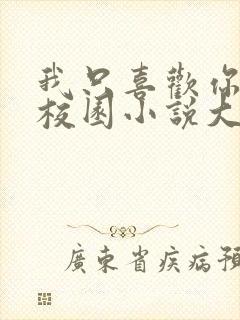 我只喜歡你
校園小說大
廣東省疾病預